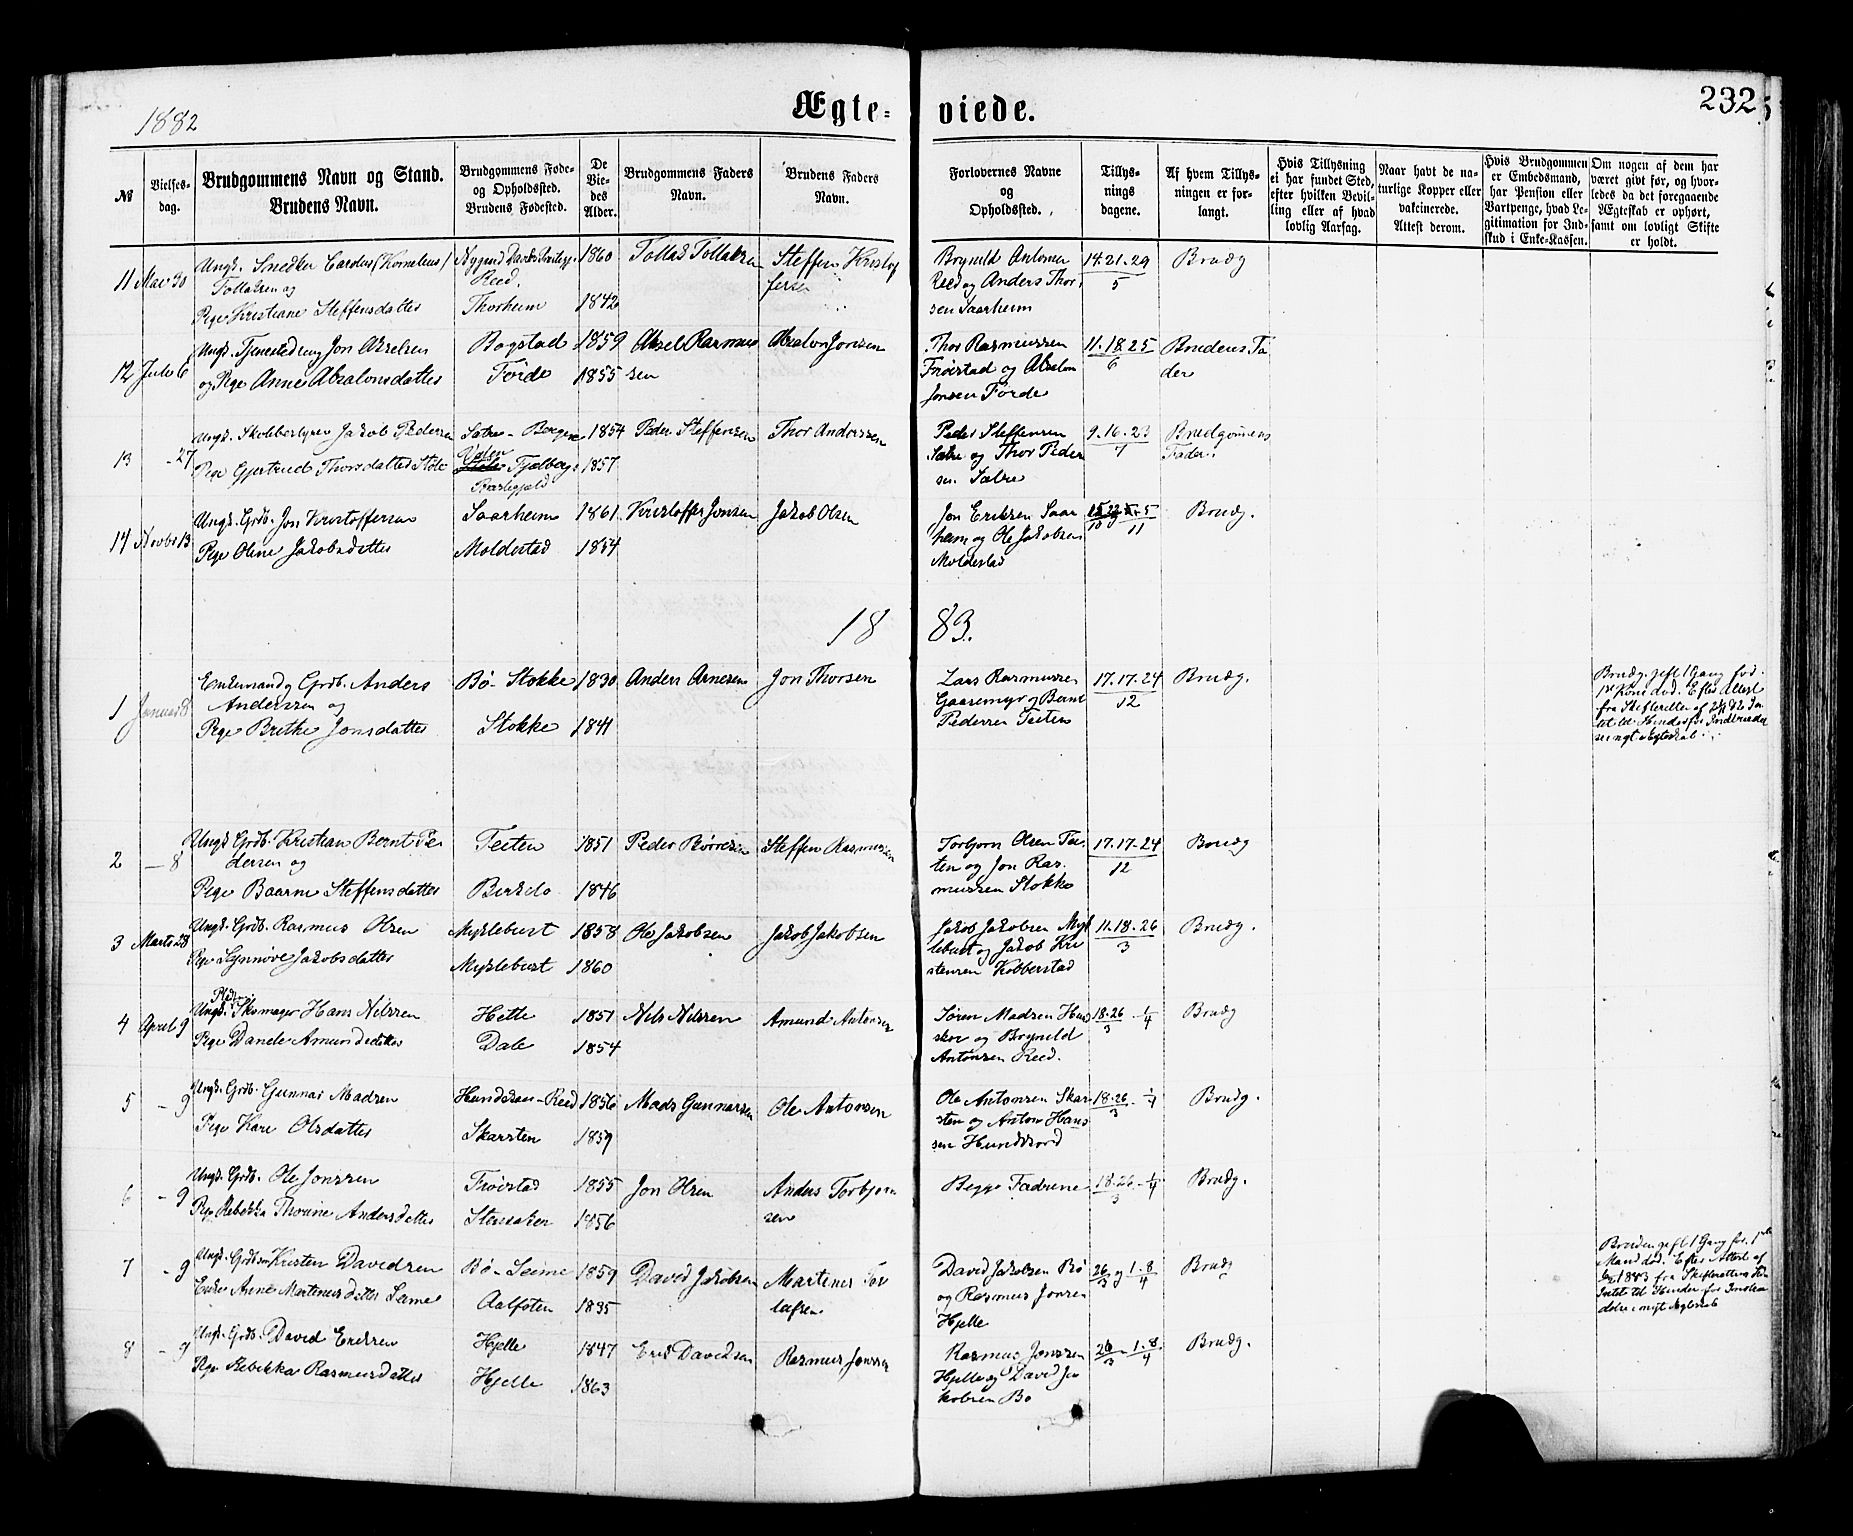 1882
Ægte- viede.
232
№
Vielses-
dag.
Brudgommens Navn og Stand.
Brudens Navn.
Brudgommens Føde-
og Opholdssted.
Brudens Fødested.
De
Vie-
des
Alder.
Brudgommens Faders
Navn.
Brudens Faders
Navn.
Forlovernes Navne
og
Opholdssted.
Tillys-
nings
dagene.
Af hvem Tillys-
ningen er for-
langt.
Hvis Tillysning
ei har fundet Sted,
efter hvilken Bevil-
ling eller af hvad
lovlig Aarsag.
Naar havt de na-
turlige Kopper eller
vakcinerede.
Attest derom.
Hvis Brudgommen
er Embedsmand,
har Pension eller
Vartpenge, hvad Le-
gitimation for Ind-
skud i Enke-Kassen.
Om nogen af dem har
været givt før, og hvor-
ledes da det foregaaende
Ægteskab er ophørt,
samt om lovligt Skifte
er holdt.
11 Mai 30
Ungk. Snedker Cardus (Kornelius)
Tollaksen og
Pige Kristiane Steffensdatter
Reed.
Thorheim
1860
1842
Tollak Tollaksen
Steffen Kristof
fersen
Brynild Antonsen
Reed og Anders Thor
sen Saarheim
14. 21. 29
5
Brudg
12 Juli 6
Ungk. Tjenestedreng Jon Akselsen
og Pige Anne Absalonsdatter
Bogstad
Førde
1859
1855
Aksel Rasmus
sen
Absalon Jonsen
Thor Rasmussen
Frøistad og Absalon
Jonsen Førde
11. 18. 25
6
Brudens Fa
der
13 - 27
Ungk. Jakob Pedersen
Pige Gjertrud Thorsdatter Støle
Sætre - Bergen
Fjelberg
Præstegjeld
1854
1857
Peder Steffensen
Thor Anderssen
Peder Steffensen
Sætre og Thor Peder
sen Sætre
9. 16. 23
7
Brudgommens
Fader.
14 Novbr 13
Ungk. Grdb. Jon Kristoffersen
Pige Oline Jakobsdatter
Saarheim
Moldestad
1861
1854
Kristoffer Jonsen
Jakob Olsen
Jon Eriksen Saar
heim og Ole Jakobsen
Moldestad
10 11
Brudg.
18 83.
1 Januar 8
Enkemand g Grdb. Anders
Anderssen og
Pige Brithe Jonsdatter
Bø - Stokke
Stokke
1830
1841
Anders Arnesen
Jon Thorsen
Lars Rasmussen
Gaasemyr og Bernt
Pedersen Teiten
17. 17. 24
12
Brudg.
Brudg. gift 1 Gang før.
1ste Kone død. Efter Attest
fra Skifteretten af
2 - 8
Ungk. Grdb. Kristian Bernt Pe
dersen og
Pige Baarni Steffensdatter
Teiten
1851
1846
Peder Børresen
Steffen Rasmussen
Torbjørn Olsen Tei
ten og Jon Ras
mussen Stokke
17. 17. 24
12
Brudg
3 Marts 28
Ungk. Grdb. Rasmus Olsen
Pige Synnøve Jakobsdatter
Myklebust
Myklebust
1858
1860
Ole Jakobsen
Jakob Jakobsen
Jakob Jakobsen Myk
lebust og Jakob Kri
stensen Kobberstad
11. 18. 26
3
Brudg.
4 April 9
Ungk. Skomager Hans Nilssen
Pige Danele Amundsdatter
Hette
Dale
1851
1854
Nils Nilssen
Amund Antonsen
Søren Madsen Hund
skor og Brynild
Antonsen Reed.
18. 26 1
3 4
Brudg
5 - 9
Ungk. Grdb. Gunnar Madsen
Pige Kari Olsdatter
Hundskaar - Reed
Skarsten
1856
1859
Mads Gunnarsen
Ole Antonsen
Ole Antonsen Skar
sten og Anton Hans
sen
18. 26 1
3 4
Brudg.
6 - 9
Ungk. Grdb. Ole Jonssen
Pige Rebekka Thorine Andersdatter
Frøistad
Stensaker
1855
1856
Jon Olsen
Anders Torbjørn
sen
Begge Fædrene
18. 26 1
3 4
Brudg.
7 - 9
Ungk. Grdb. søn Kristen Davidsen
Enke Anne Martinusdatter Seime
Bø - Seime
Aalfoten
1859
1835
David Jakobsen
Martinus Tor
leifsen
David Jakobsen Bø
og Rasmus Jonsen
Hjelle
26 og 1. 8
3 4
Brudg
Bruden gift 1 Gang før. 1ste
Mand død. Efter Attest af
1883 fra Skifteretten
Intet til Hinder for
8 - 9
Ungk. Grdb. David Eriksen
Pige Rebekka Rasmusdatter
Hjelle
Hjelle
1847
1863
Erik Davidsen
Rasmus Jonssen
Rasmus Jonssen
Hjelle og David Ja
kobsen Bø
26 1. 8.
3 4
Brudg.